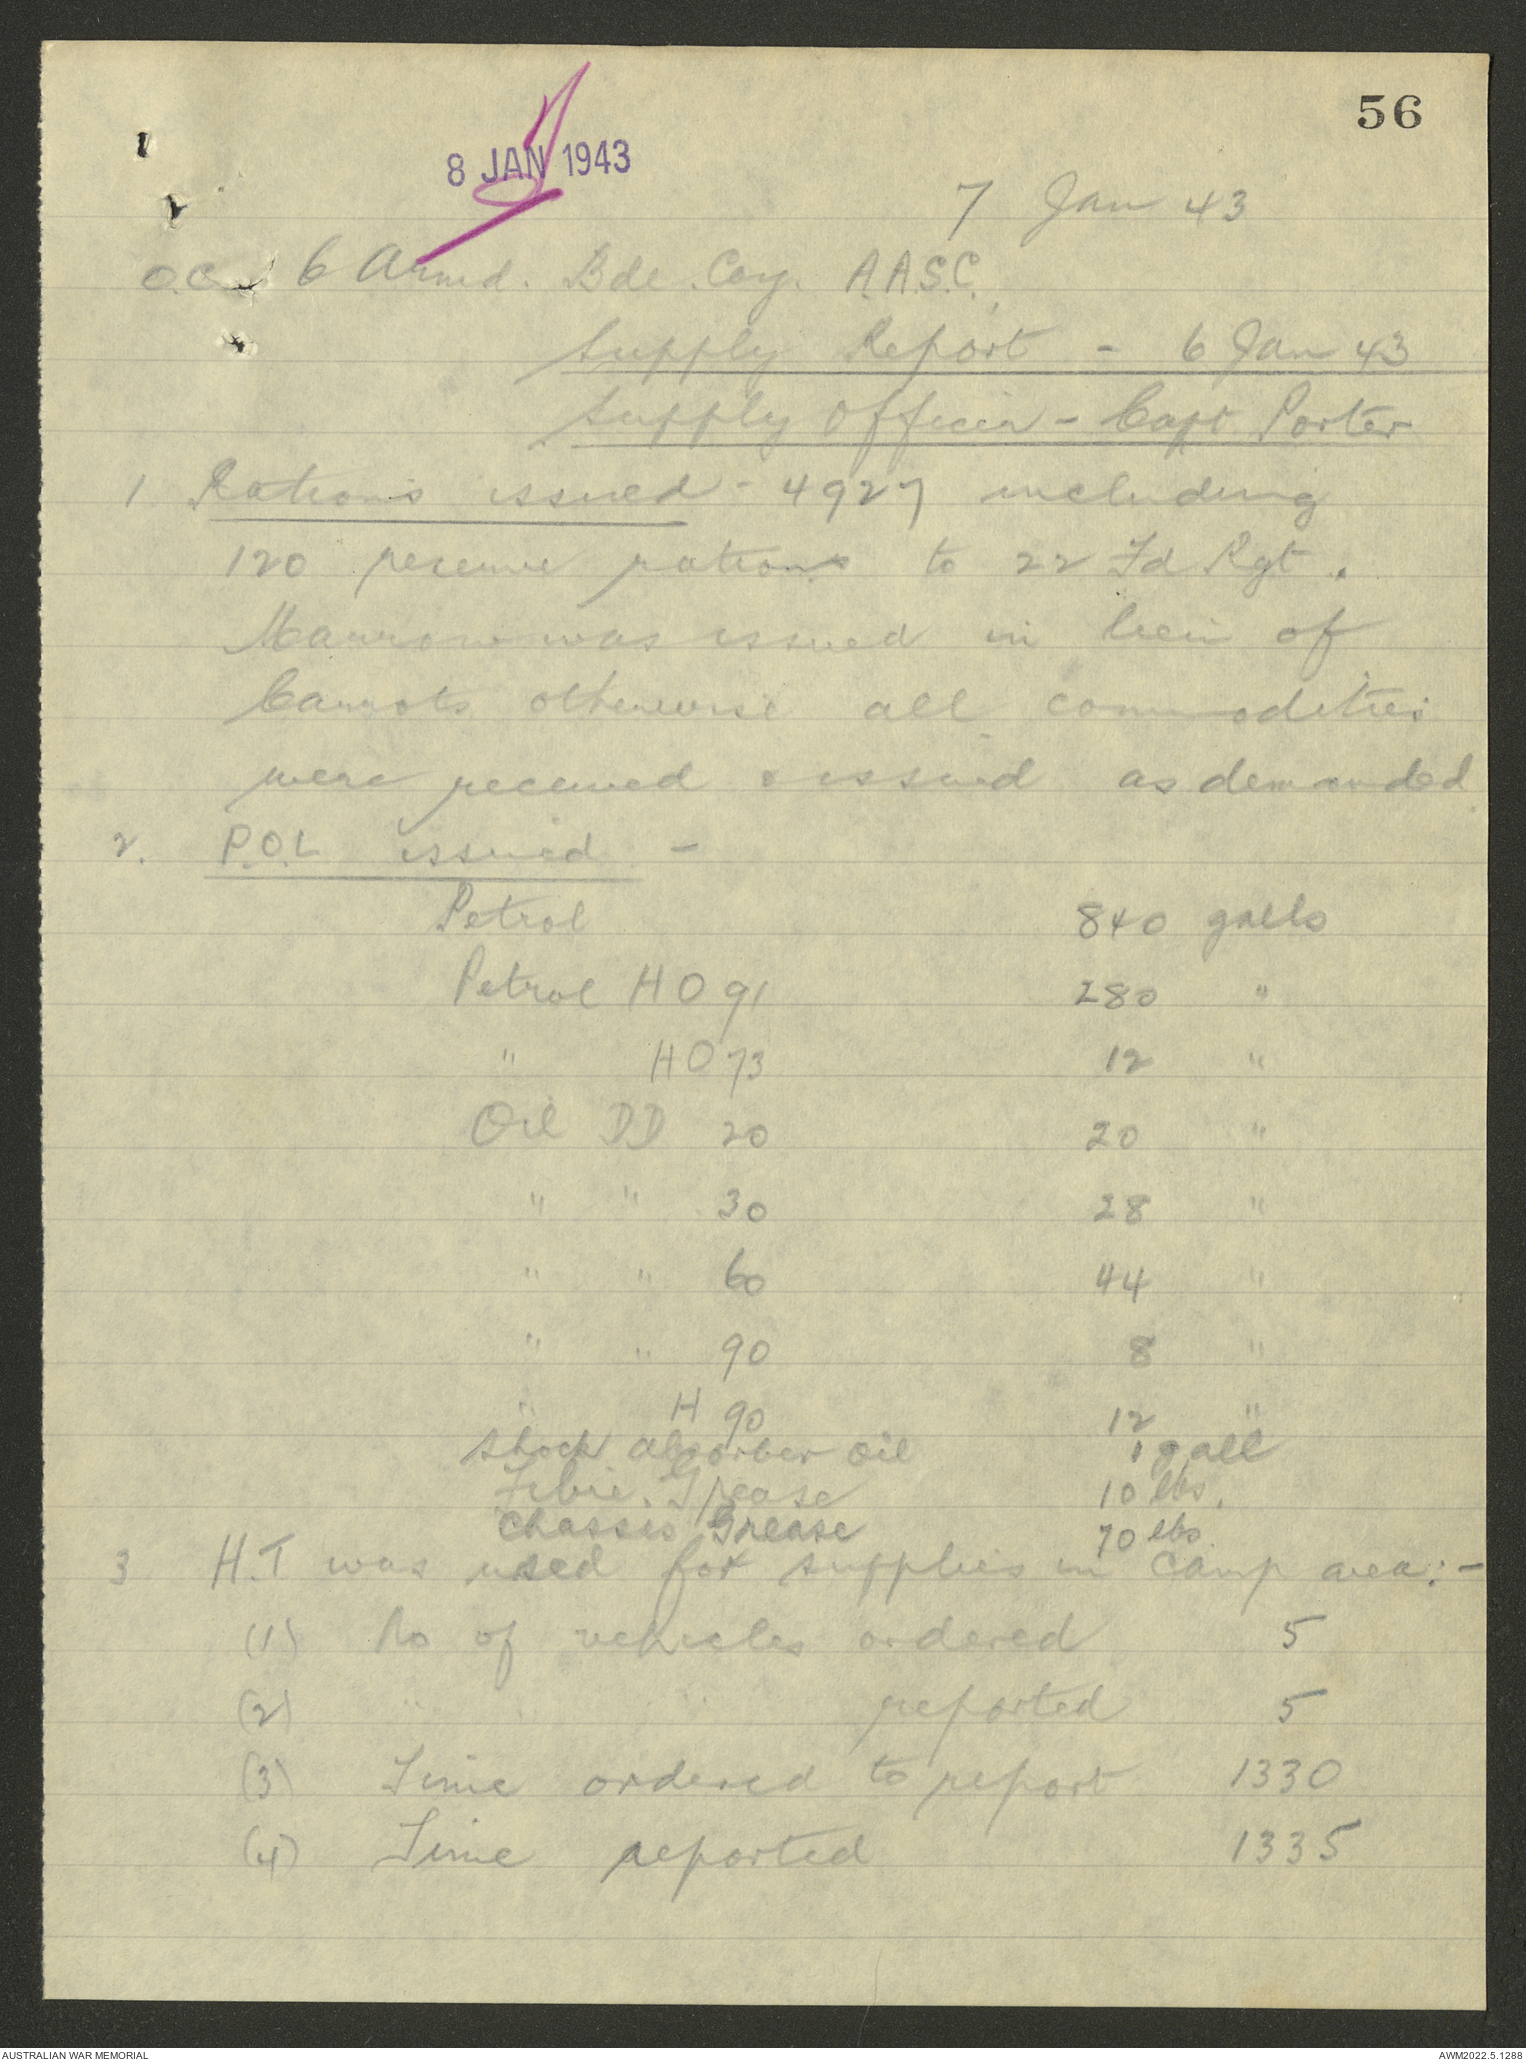 56
8 JAN 1943
7 Jan 43
O.C. 6 Armd. Bde. Coy. A.A.S.C.
Supply Report - 6 Jan 43
Supply Officer - Capt Porter
1 Rations issued - 4927 including
120 reserve rations to 22 Fd Rgt.
Marrow was issued in lieu of
Carrots otherwise all commodities
were received & issued as demanded
2. P.O.L issued -
Petrol 840 galls
Petrol HO 91 280 "
" HO 73 12 "
Oil DD 20 20 "
" " 30 28 "
" " 60 44 "
" " 90 8 "
" H 90 12 "
Shock absorber oil 1 gall
Fibre. Grease 10 lbs.
Chassis Grease 70 lbs.
3 H.T was used for supplies in Camp area:-
(1) No of vehicles ordered 5
(2) " " " reported 5
(3) Time ordered to report 1330
(4) Time reported 1335
AUSTRALIAN WAR MEMORIAL
AWM2022.5.1288